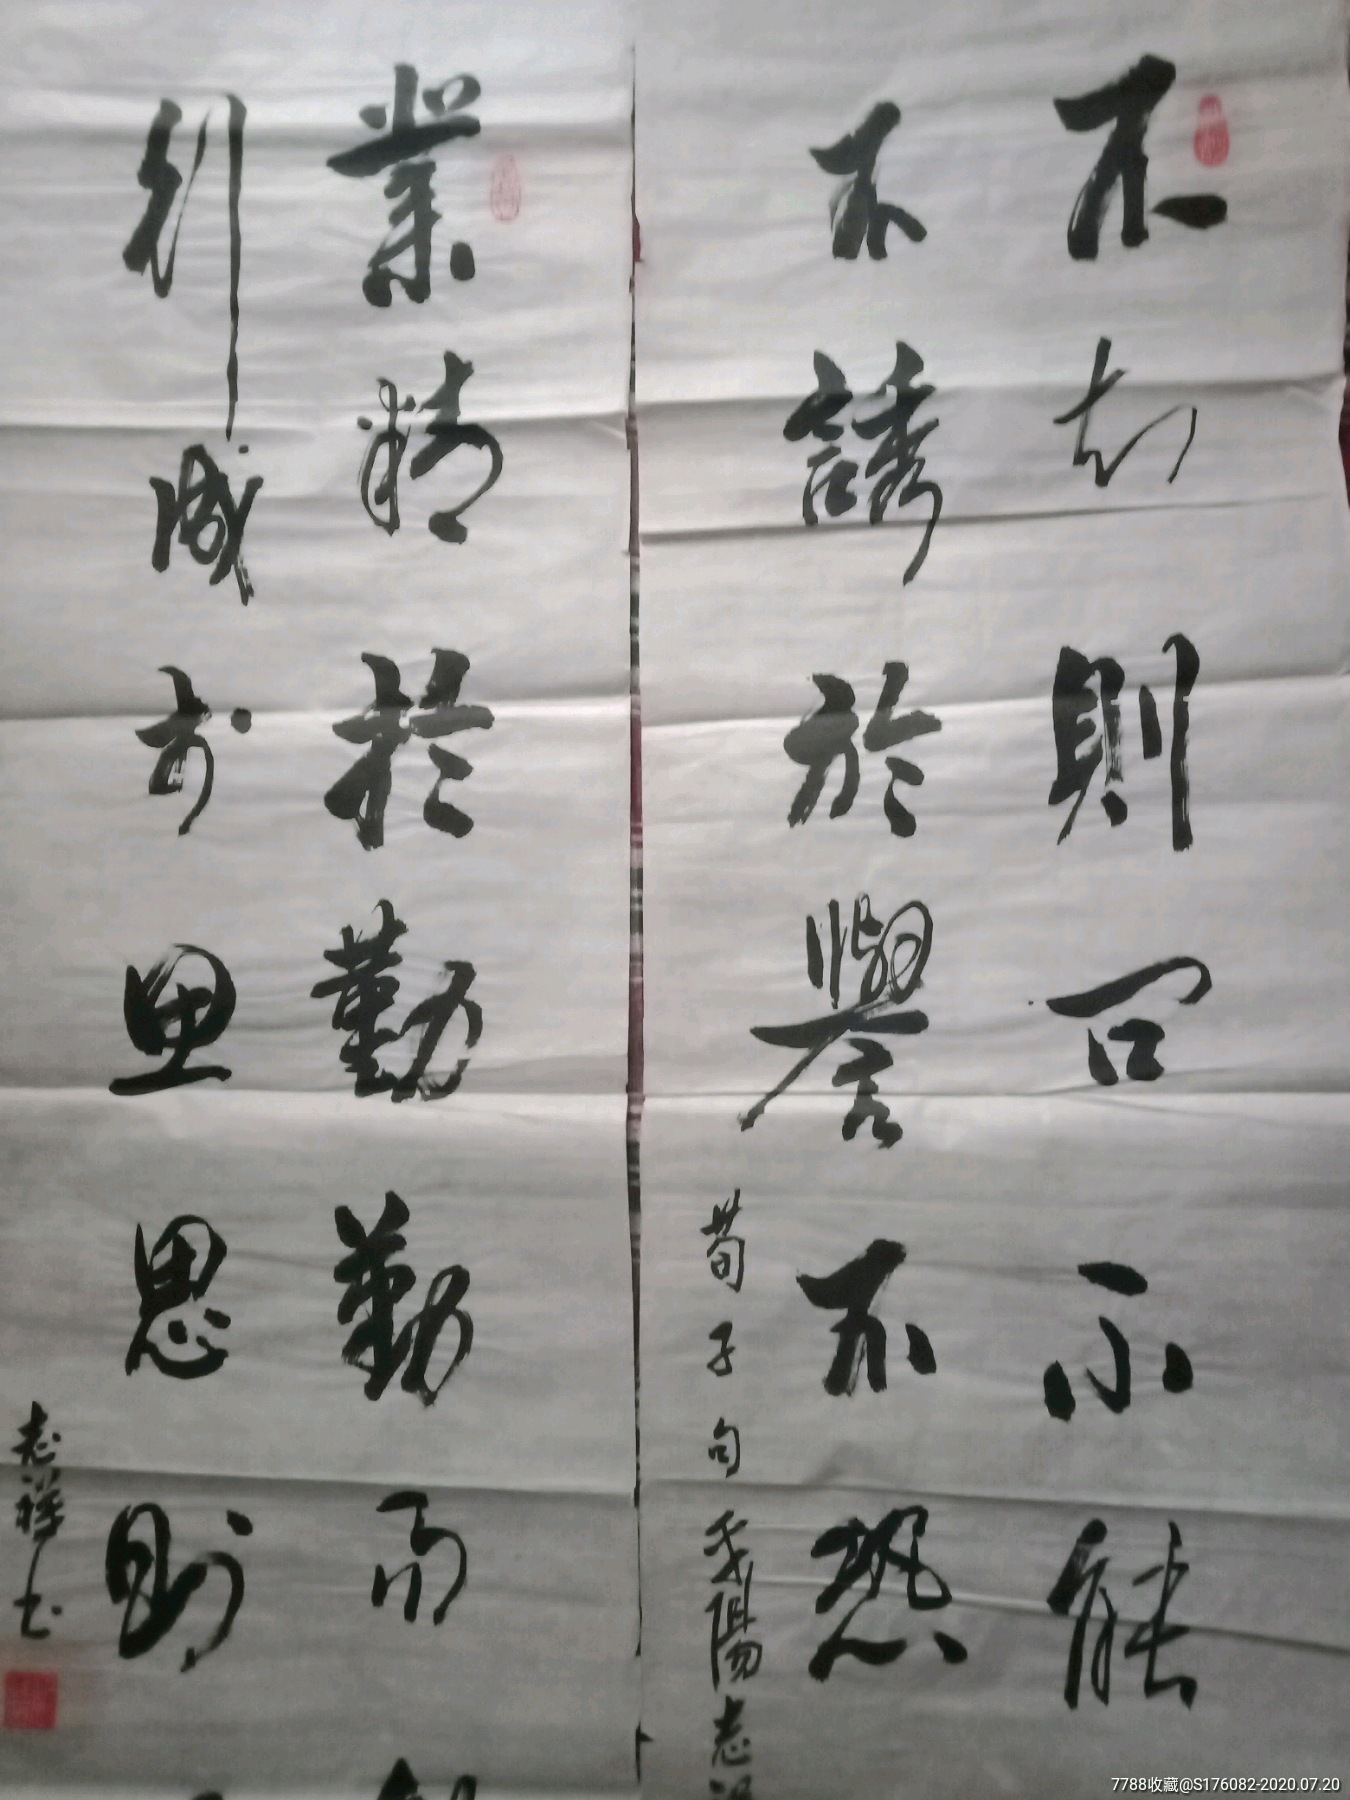 不知則问不能
不誘於譽不恐
荀子句 陽志
業精於勤勤而
行成於思思則
志祥书
7788收藏@S176082-2020.07.20